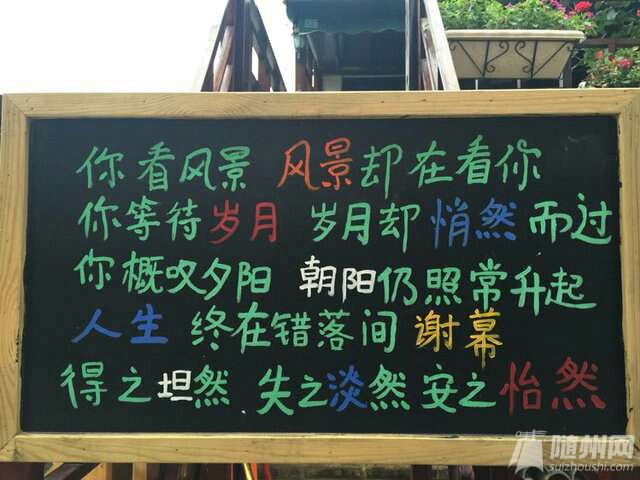 你看风景 风景却在看你
你等待岁月 岁月却悄然而过
你概叹夕阳 朝阳仍照常升起
人生 终在错落间 谢幕
得之坦然 失之淡然 安之怡然
随州网
suizhoushi.com